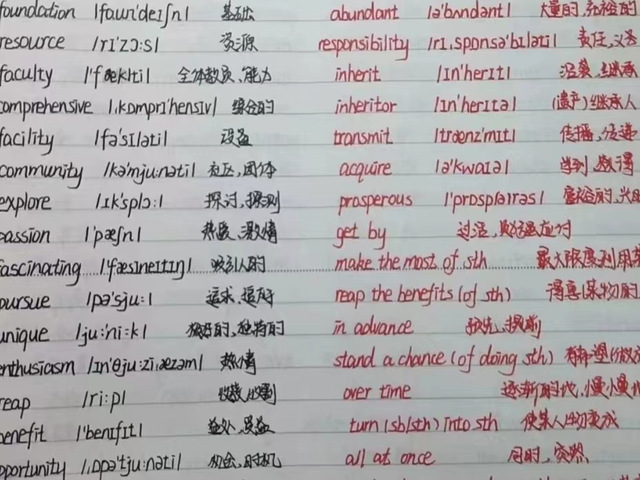 foundation /faun'deiʃn/ 基础 abundant /ə'bʌndənt/ 大量的,充裕的
resource /rɪ'zɔ:s/ 资源 responsibility /rɪˌsponsə'bɪləti/ 责任,义务
faculty /'fæklti/ 全体教员,能力 inherit /ɪn'herɪt/ 沿袭,继承
comprehensive /ˌkɒmprɪ'hensɪv/ 综合的 inheritor /ɪn'herɪtə/ (遗产)继承人
facility /fə'sɪləti/ 设备 transmit /trænz'mɪt/ 传播,
community /kə'mju:nəti/ 社区,团体 acquire /ə'kwaɪə/ 学到,获得
explore /ɪk'splɔ:/ 探讨,探测 prosperous /'prɒspərəs/ 富裕的,
passion /'pæʃn/ 热爱,激情 get by 过活,
fascinating /'fæsɪneɪtɪŋ/ 吸引人的 make the most of sth 最大限度利用某
pursue /pə'sju:/ 追求, reap the benefits (of sth) 得享(某物的
unique /ju:'ni:k/ 独特的 in advance 预先,提前
enthusiasm /ɪn'θju:ziˌæzəm/ 热情 stand a chance (of doing sth)
reap /ri:p/ 收获,收割 over time 逐渐的,慢慢
benefit /'benɪfɪt/ 益处,受益 turn (sb/sth) into sth 使某人/物变成
opportunity /ˌɒpə'tju:nəti/ 机会,时机 all at once 同时,突然